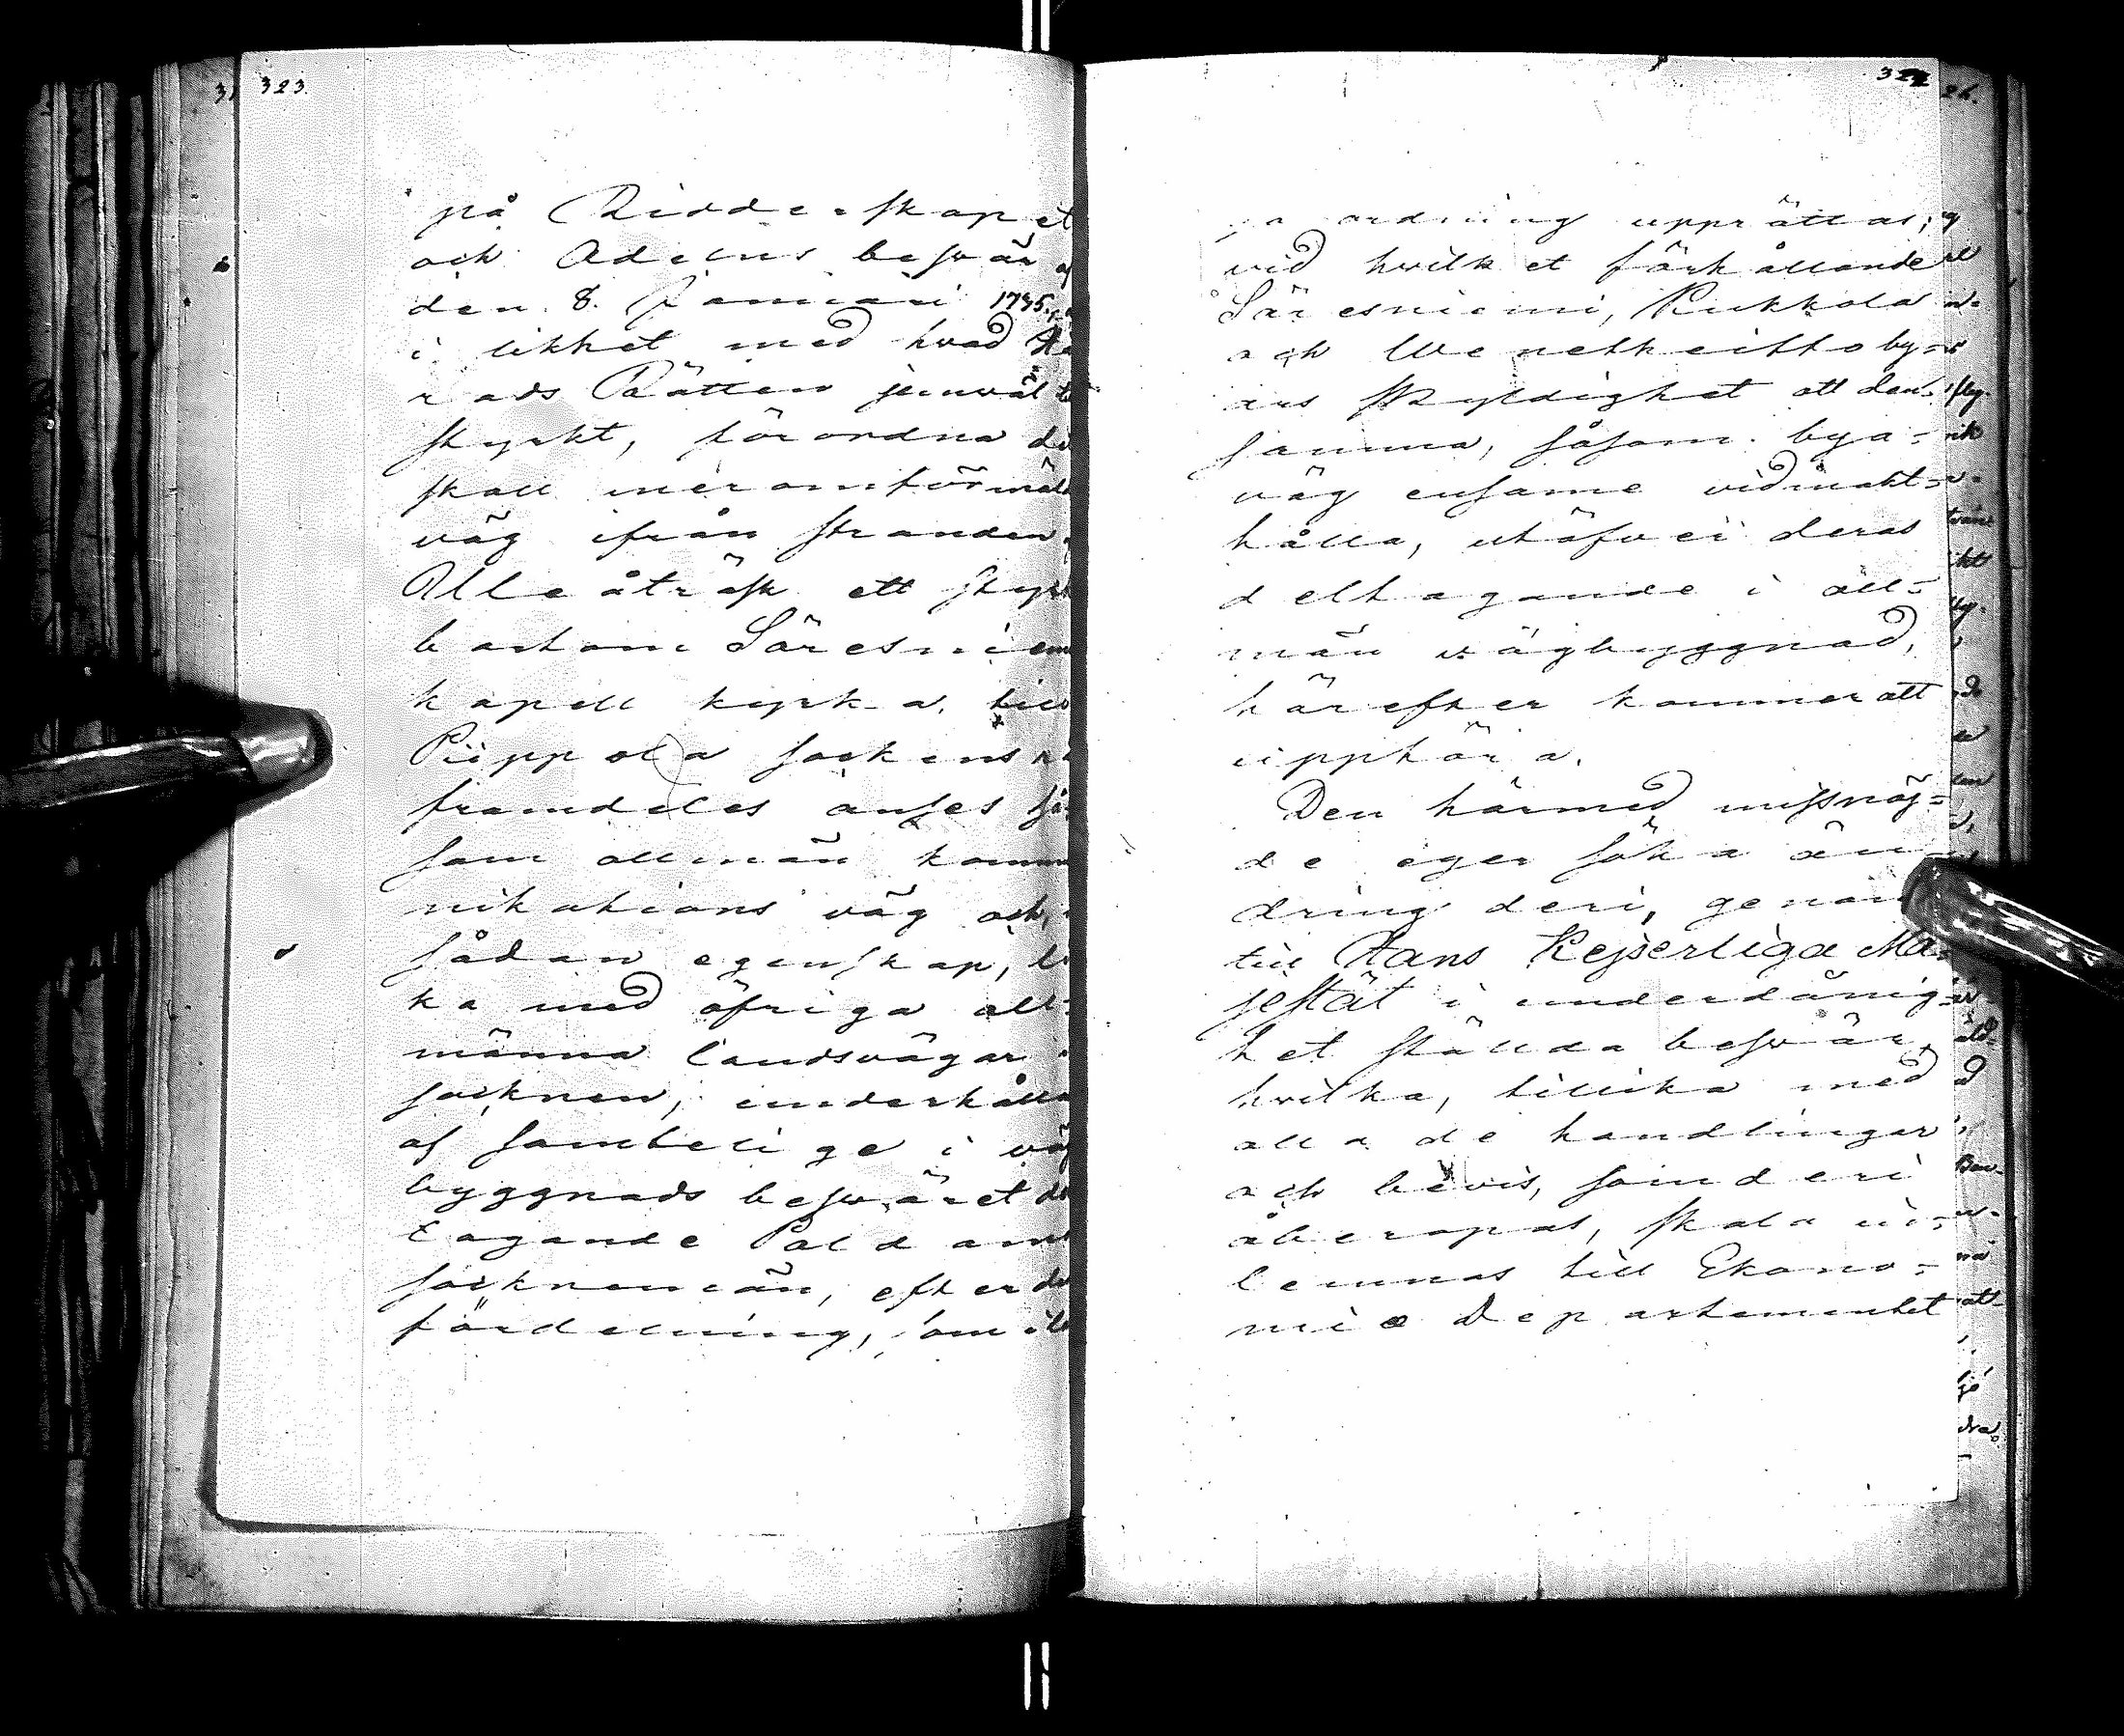 323.
på Ridderskapet
och Adelns beswär
den 8. Januari 1735.,
i likhet med hwad
rads Rätten jemwäl
styrkt, förordna
skall meromförmäl
wäg ifrån stranden
Uleåträsk ett styc
bortom Säresniem
kapell kyrka, till
Piippola socken
framdeles anses så
som allmän kommu
nikations wäg och
sådan egenskap, li
ka med öfriga all-
männa landswägar
socknen, underhålla
af samtelige i wäg
byggnads beswäret de
tagande Paldamo
sockneman, efter
fördelning, som
324
ordning upprättas,
wid hwilket förhållande
Säresniemi, Kukkola
och Wenetheitto by-
ars skyldighet att den-
samma, såsom bya-
wäg ensame widmakt-
hålla, utöfwer deras
delhagande i all-
män wägbyggnad,
härefter kommer att
upphöra.
Den härmed missnöj-
de eger söka än-
dring deri, genom
till Hans Kejserliga Ma-
jestät i underdånig-
het stälda beswär,
hwilka, tillika med
alla de handlingar
och bewis, som deri
åberopas, skola in-
lemnas till Ekono-
mie Departementet